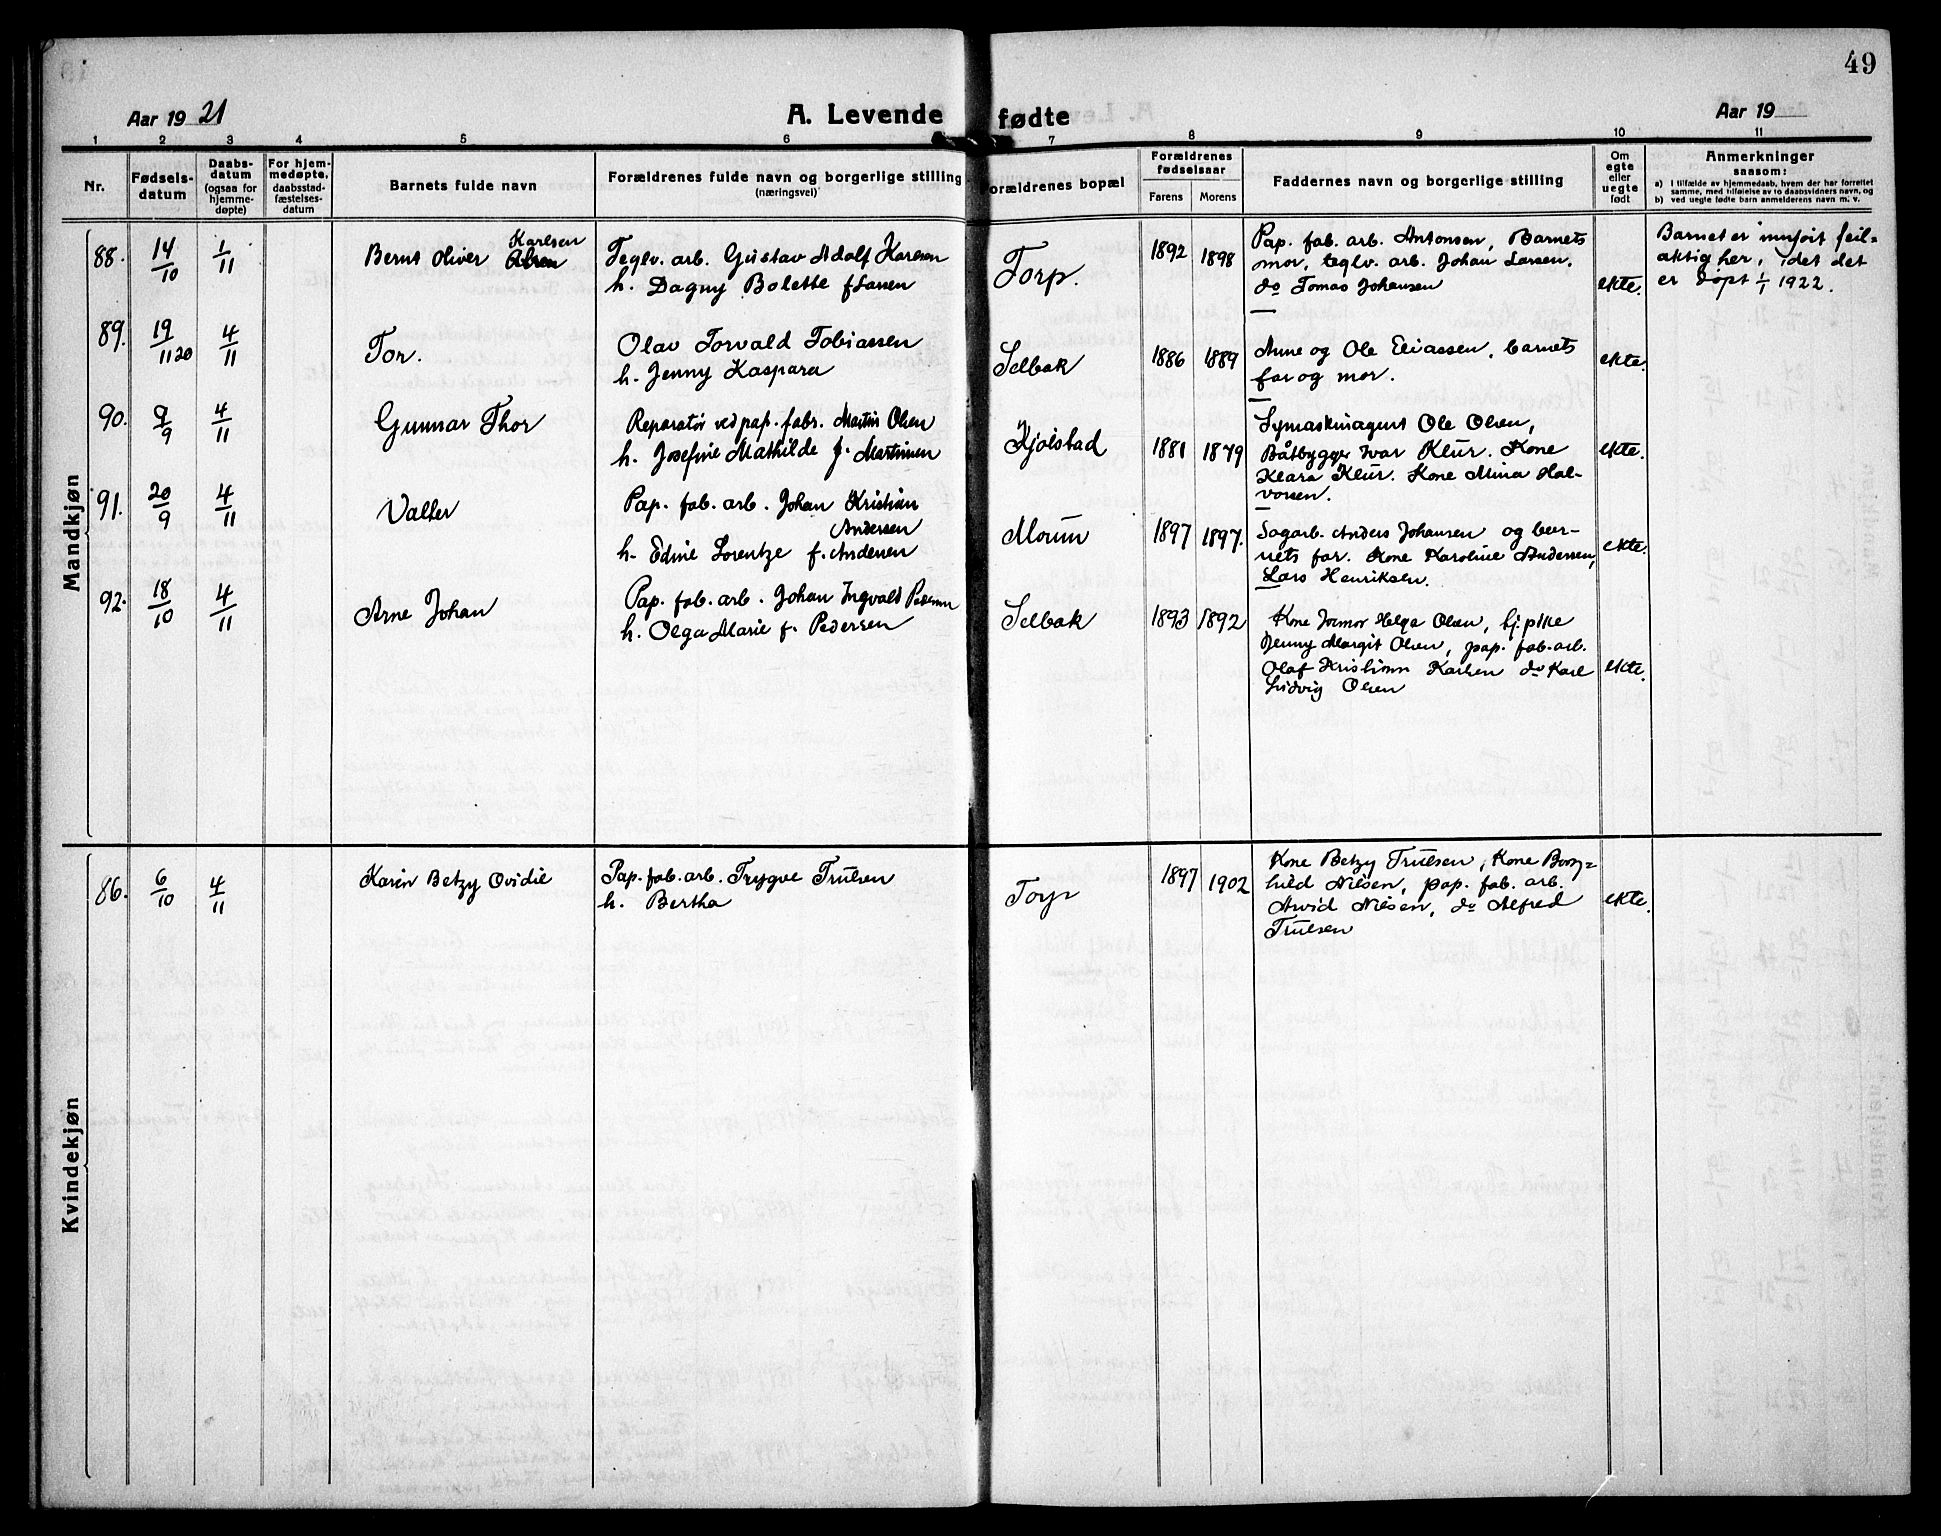 49
Aar 1921
A. Levende fødte
Aar 19
1 2 3 4 5 6 7 8 9 10 11
Nr.
Fødsels-
datum
Daabs-
datum
(ogsaa for
hjemme-
døpte)
For hjem-
medøpte,
daabsstad-
fæstelses-
datum
Barnets fulde navn
Forældrenes fulde navn og borgerlige stilling
(næringsvei)
orældrenes bopæl
Forældrenes
fødselsaar
Farens Morens
Faddernes navn og borgerlige stilling
Om
egte
eller
uegte
født
Anmerkninger
saasom:
a) I tilfælde av hjemmedaab, hvem der har forrettet
samme, med tilføielse av to daabsvidners navn, og
b) ved uegte fødte barn anmelderens navn m. v.
Mandkjøn
88. 14/10 1/11
Karlsen
Bernt Oliver
Teglv. arb. Gustav Adolf Karlsen
h. Dagny Bolette f Larsen
Torp.
1892 1898
Pap. fab. arb. Antonsen, Barnets
mor, teglv. arb. Johan Larsen.
do Tomas Johansen
ekte.
Barnet er innført feil-
aktig her, idet det
er døpt 1/1 1922.
89. 19/11 20 4/11
Tor.
Olav Torvald Tobiassen
h. Jenny Kaspara
Selbak
1886 1889
Anne og Ole Eliassen, barnets
far og mor.
ekte.
90. 9/9 4/11
Gunnar Thor
Reparatør ved pap. fabr. Martin Olsen
h. Josefine Mathilde f. Martinsen
Kjølstad
1881 1879
Symaskinagent Ole Olsen,
Båtbygger Ivar Klür. Kone
Klara Klür. Kone Mina Hal-
vorsen.
ekte.
91. 20/9 4/11
Valter
Pap. fab. arb. Johan Kristian
Andersen
h. Edine Lorentze f. Andersen
Moum
1897 1897.
Sagarb. Anders Johansen og bar-
nets far. Kone Karoline Andersen,
Lars Henriksen.
ekte.
92. 18/10 4/11
Arne Johan
Pap. fab. arb. Johan Ingvald Pedersen
h. Olga Marie f. Pedersen
Selbak
1893 1892
Kone Jormor Helga Olsen, hj. pike
Jenny Margit Olsen, pap. fab. arb.
Olaf Kristian Karlsen do Karl
Ludvig Olsen
ekte.
Kvindekjøn
86. 6/10 4/11
Karin Betzy Ovidie
Pap. fab. arb. Trygve Trulsen
h. Bertha
Torp
1897 1902
Kone Betzy Trulsen, Kone Borg-
hild Nilsen, pap. fab. arb.
Arvid Nilsen, do Alfred
Trulsen
ekte.